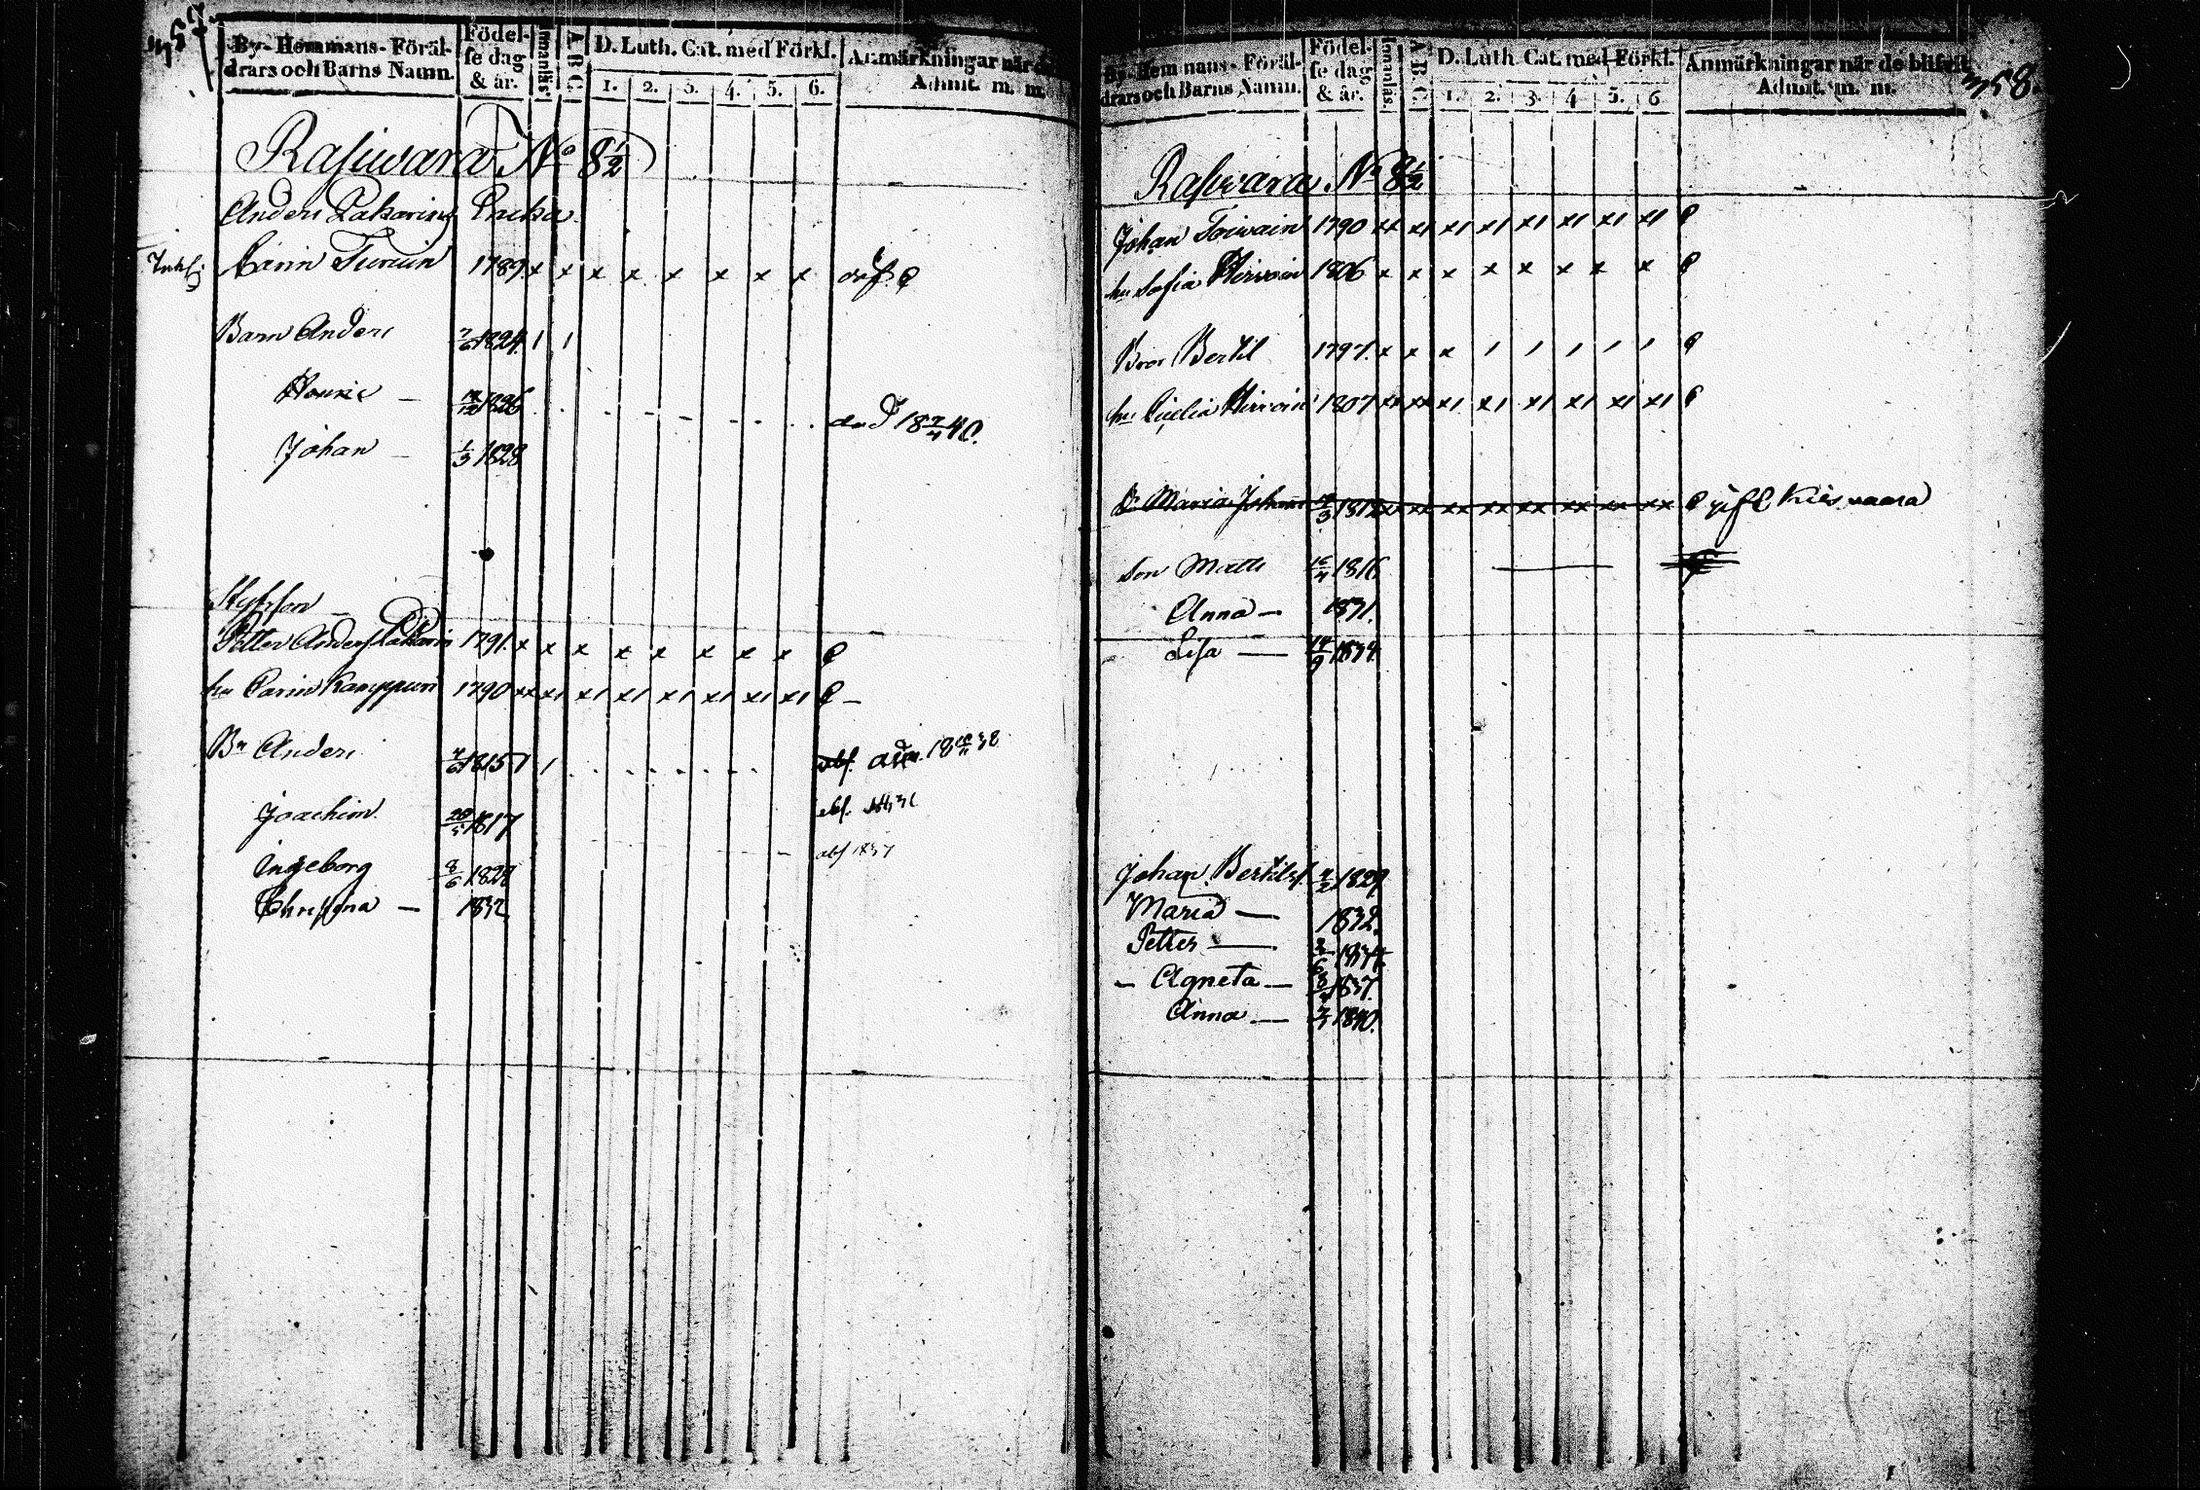 357.
By- Hemmans- Föräl-
drars och Barns Namn.
Födel-
se dag
& år.
Innanläs.
A.B.C.
D. Luth. Cat. med Förkl.
1. 2. 3. 4. 5. 6.
Anmärkningar när de
Admit. m. m.
Rasiwara No 8½
Anders Zakarins Encka
Carin Turuin 1789 x x x x x x x x
Barn Anders 7/6 1824 1 1
Henric — 1826
död 18 7/4 40.
Johan — 1/3 1828
Hyfson —
Petter Anders 1791. x x x x x x x x
hu Carin Kamppuri 1790 xx x1 x1 x1 x1 x1 x1 x1 —
Bn Anders 7/6 1815 1 1
Joachim 20/5 1817
Ingeborg 8/6 1828 abf 1837
Christina — 1832
358.
By- Hemmans- Föräl-
drars och Barns Namn.
Födel-
se dag
& år.
Innanläs.
A.B.C.
D. Luth. Cat. med Förkl.
1. 2. 3. 4. 5. 6
Anmärkningar när de blifvit
Admit. m. m.
Rasiwara No 8½
Johan Toiwain 1790 xx x1 x1 x1 x1 x1 x1 x1
hu Sofia Hirvoin 1806 x x x x x x x x
Bror Bertil 1797. x x x 1 1 1 1 1
hu Cicilia Hirvoin 1807 xx xx x1 x1 x1 x1 x1 x1
Dr Maria Johans 1812 xx xx xx xx xx xx xx xx gift Kiesvaara
Son Matts 1816
Anna — 1831.
Lisa — 14/9 1834
Johan Bertils 1829
Maria — 1832.
Petter — 2/6 1834
— Agneta — 1837.
Anna — 1840.